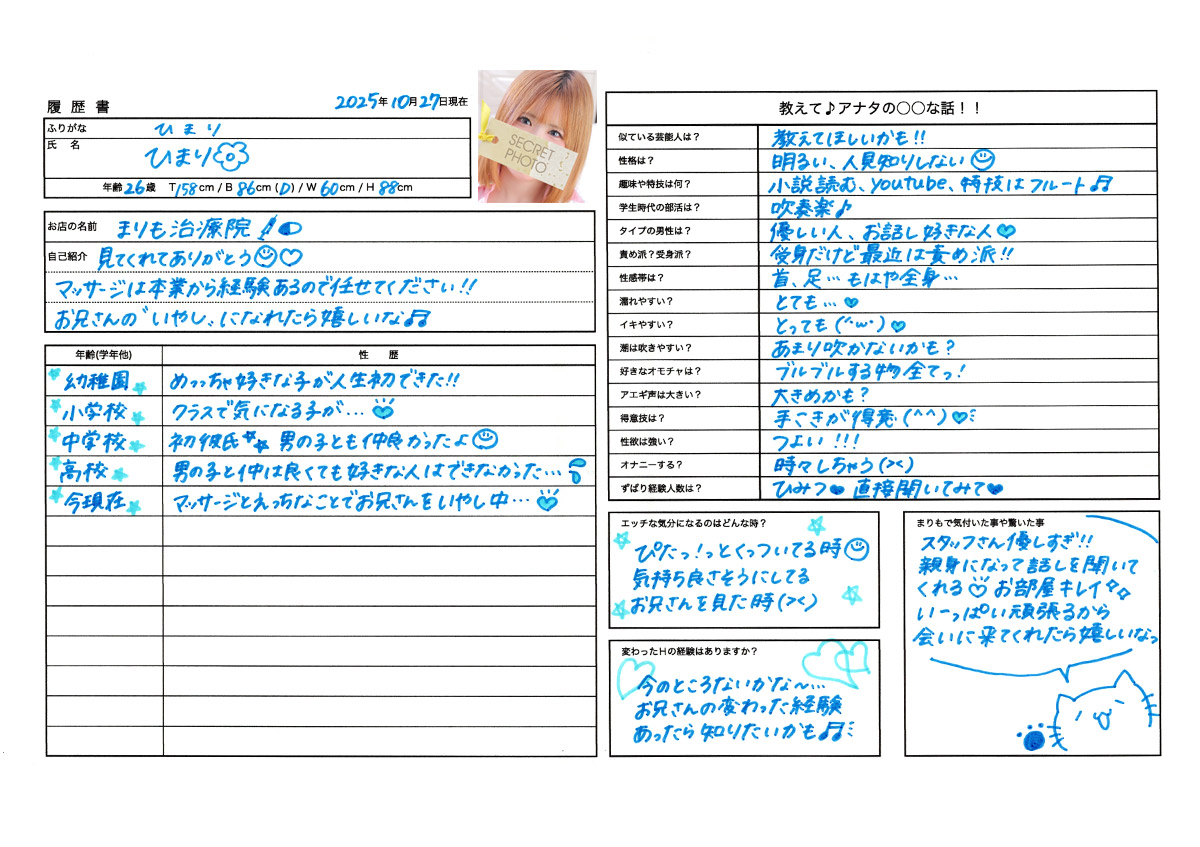 履歴書
2025年 10月27日現在
ふりがな ひまり
氏 名 ひまり
年齢26歳 T158cm / B 86cm (D) / W 60cm / H 88cm
SECRET
PHOTO
お店の名前 まりも治療院
自己紹介 見てくれてありがとう
マッサージは本業から経験あるので任せてください!!
お兄さんの"いやし"になれたら嬉しいな♫
年齢(学年他) 性 歴
幼稚園 めっちゃ好きな子が人生初できた!!
小学校 クラスで気になる子が…
中学校 初彼氏 男の子とも仲良かったよ
高校 男の子と仲は良くても好きな人はできなかった…
今現在 マッサージとえっちなことでお兄さんをいやし中…
教えて♪アナタの○○な話！！
似ている芸能人は? 教えてほしいかも!!
性格は? 明るい、人見知りしない
趣味や特技は何? 小説読む、youtube、特技はフルート♫
学生時代の部活は? 吹奏楽♪
タイプの男性は? 優しい人、お話し好きな人
責め派?受身派? 受身だけど最近は責め派!!
性感帯は? 首、足…もはや全身…
濡れやすい? とても…
イキやすい? とっても(*´ω`*)
潮は吹きやすい? あまり吹かないかも?
好きなオモチャは? ブルブルする物全てっ!
アエギ声は大きい? 大きめかも?
得意技は? 手こきが得意(^^)
性欲は強い? つよい!!!
オナニーする? 時々しちゃう(><)
ずばり経験人数は? ひみつ 直接聞いてみて
エッチな気分になるのはどんな時?
ぴたっ!っとくっついてる時
気持ち良さそうにしてる
お兄さんを見た時(><)
変わったHの経験はありますか?
今のところないかな〜…
お兄さんの変わった経験
あったら知りたいかも♫
まりもで気付いた事や驚いた事
スタッフさん優しすぎ!!
親身になって話しを聞いて
くれる♡お部屋キレイ
い〜っぱい頑張るから
会いに来てくれたら嬉しいなっ